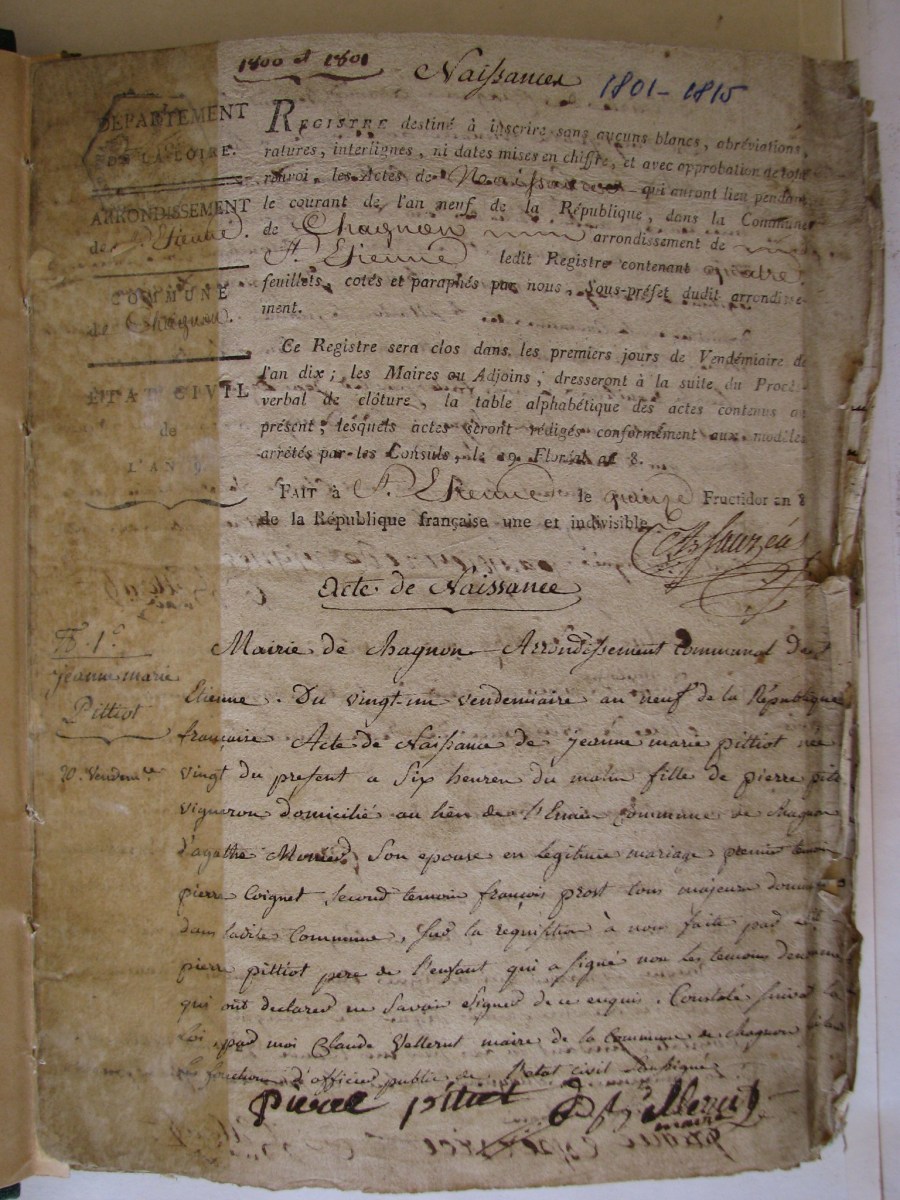 1800 et 1801
Naissances
1801-1815
DÉPARTEMENT
DE LA LOIRE.
ARRONDISSEMENT
de St. Etienne.
COMMUNE
de Chagnon.
ÉTAT CIVIL
de
L'AN 9.
REGISTRE destiné à inscrire sans aucuns blancs, abréviations,
ratures, interlignes, ni dates mises en chiffre, et avec approbation de tout
renvoi, les Actes de Naissances qui auront lieu pendant
le courant de l'an neuf de la République, dans la Commune
de Chagnon arrondissement de
St. Etienne ledit Registre contenant quatre
feuillets, cotés et paraphés par nous, Sous-préfet dudit arrondisse-
ment.
Ce Registre sera clos dans les premiers jours de Vendémiaire de
l'an dix; les Maires ou Adjoins, dresseront à la suite du Procès-
verbal de clôture, la table alphabétique des actes contenus au
présent; lesquels actes seront rédigés conformément aux modèles
arrêtés par les Consuls, le 19 Floréal an 8.
FAIT à St. Etienne le quinze Fructidor an 8
de la République française une et indivisible.
Sauzéa
Acte de Naissance
N. 1er
jeanne marie
Pittiot
20. Vendemre
Mairie de Chagnon Arrondissement Communal de St
Etienne. Du vingt-un vendemiaire an neuf de la République
française Acte de Naissance de jeanne marie pittiot née
vingt du present a Six heures du matin fille de pierre pitt
vigneron domicilié au lieu de Commune de Chagnon
d'agathe Son epouse en legitime mariage premier temoin
pierre Coignet Second temoin françois prost tous majeurs
dans ladite Commune, Sur la requisition à nous faite par
pierre pittiot pere de l'enfant qui a signé non les temoins
qui ont declarer ne Savoir Signer de ce enquis. Constaté suivant la
Loi, par moi Claude Vellerut maire de la Commune de Chagnon
fonctions d'officier public de l'etat civil Soussigné
pierre pittiot
maire